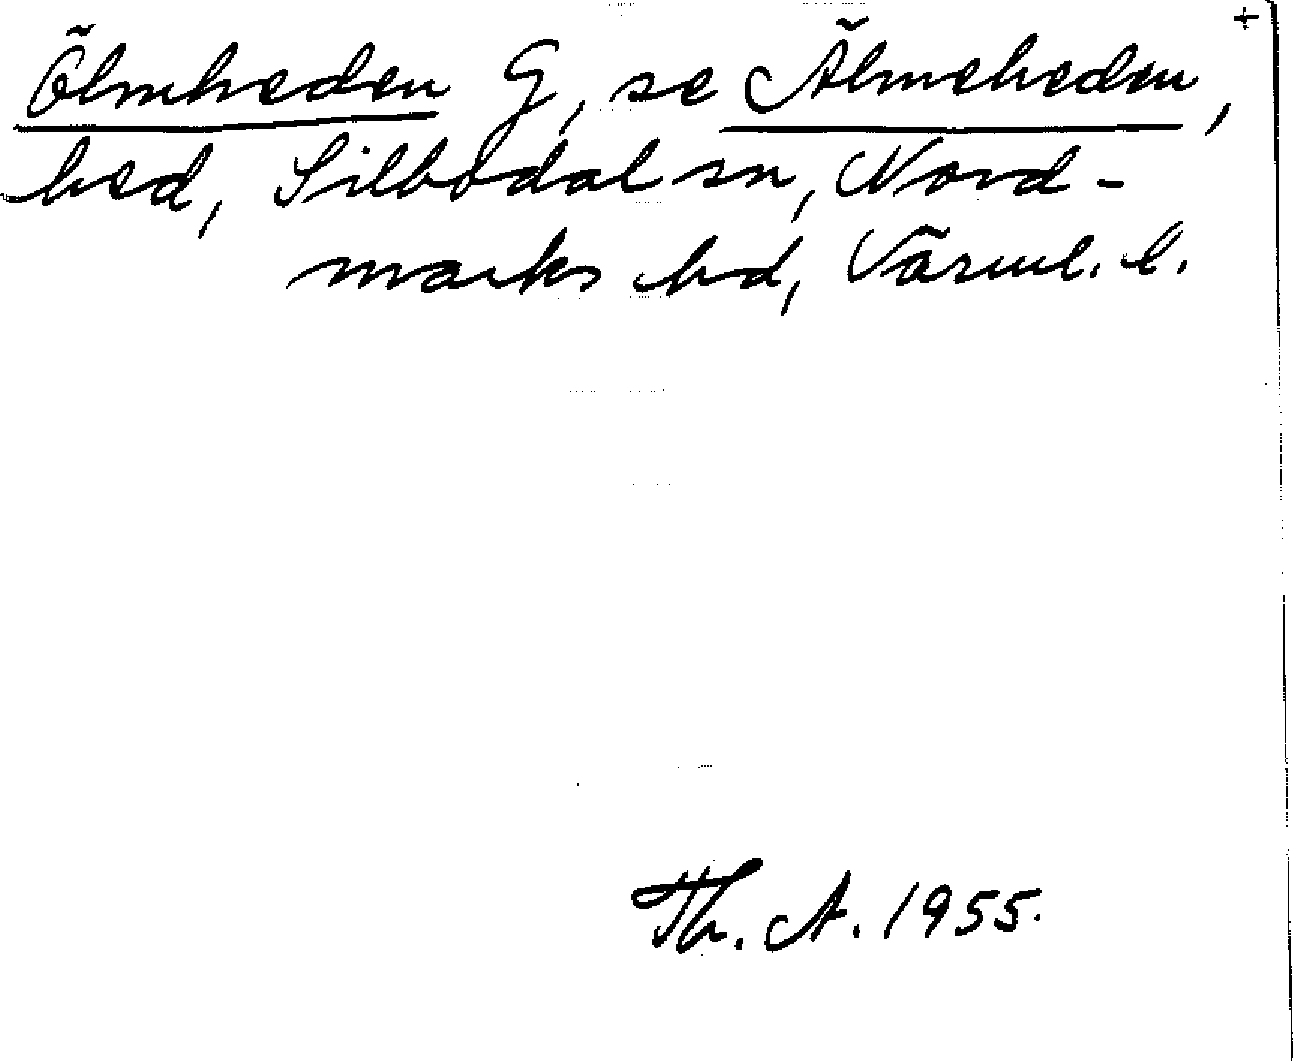 +
Ölmheden G, se Älmeheden,
hed, Silbodal sn, Nord-
marks hd, Värml. l.
Th. A. 1955.